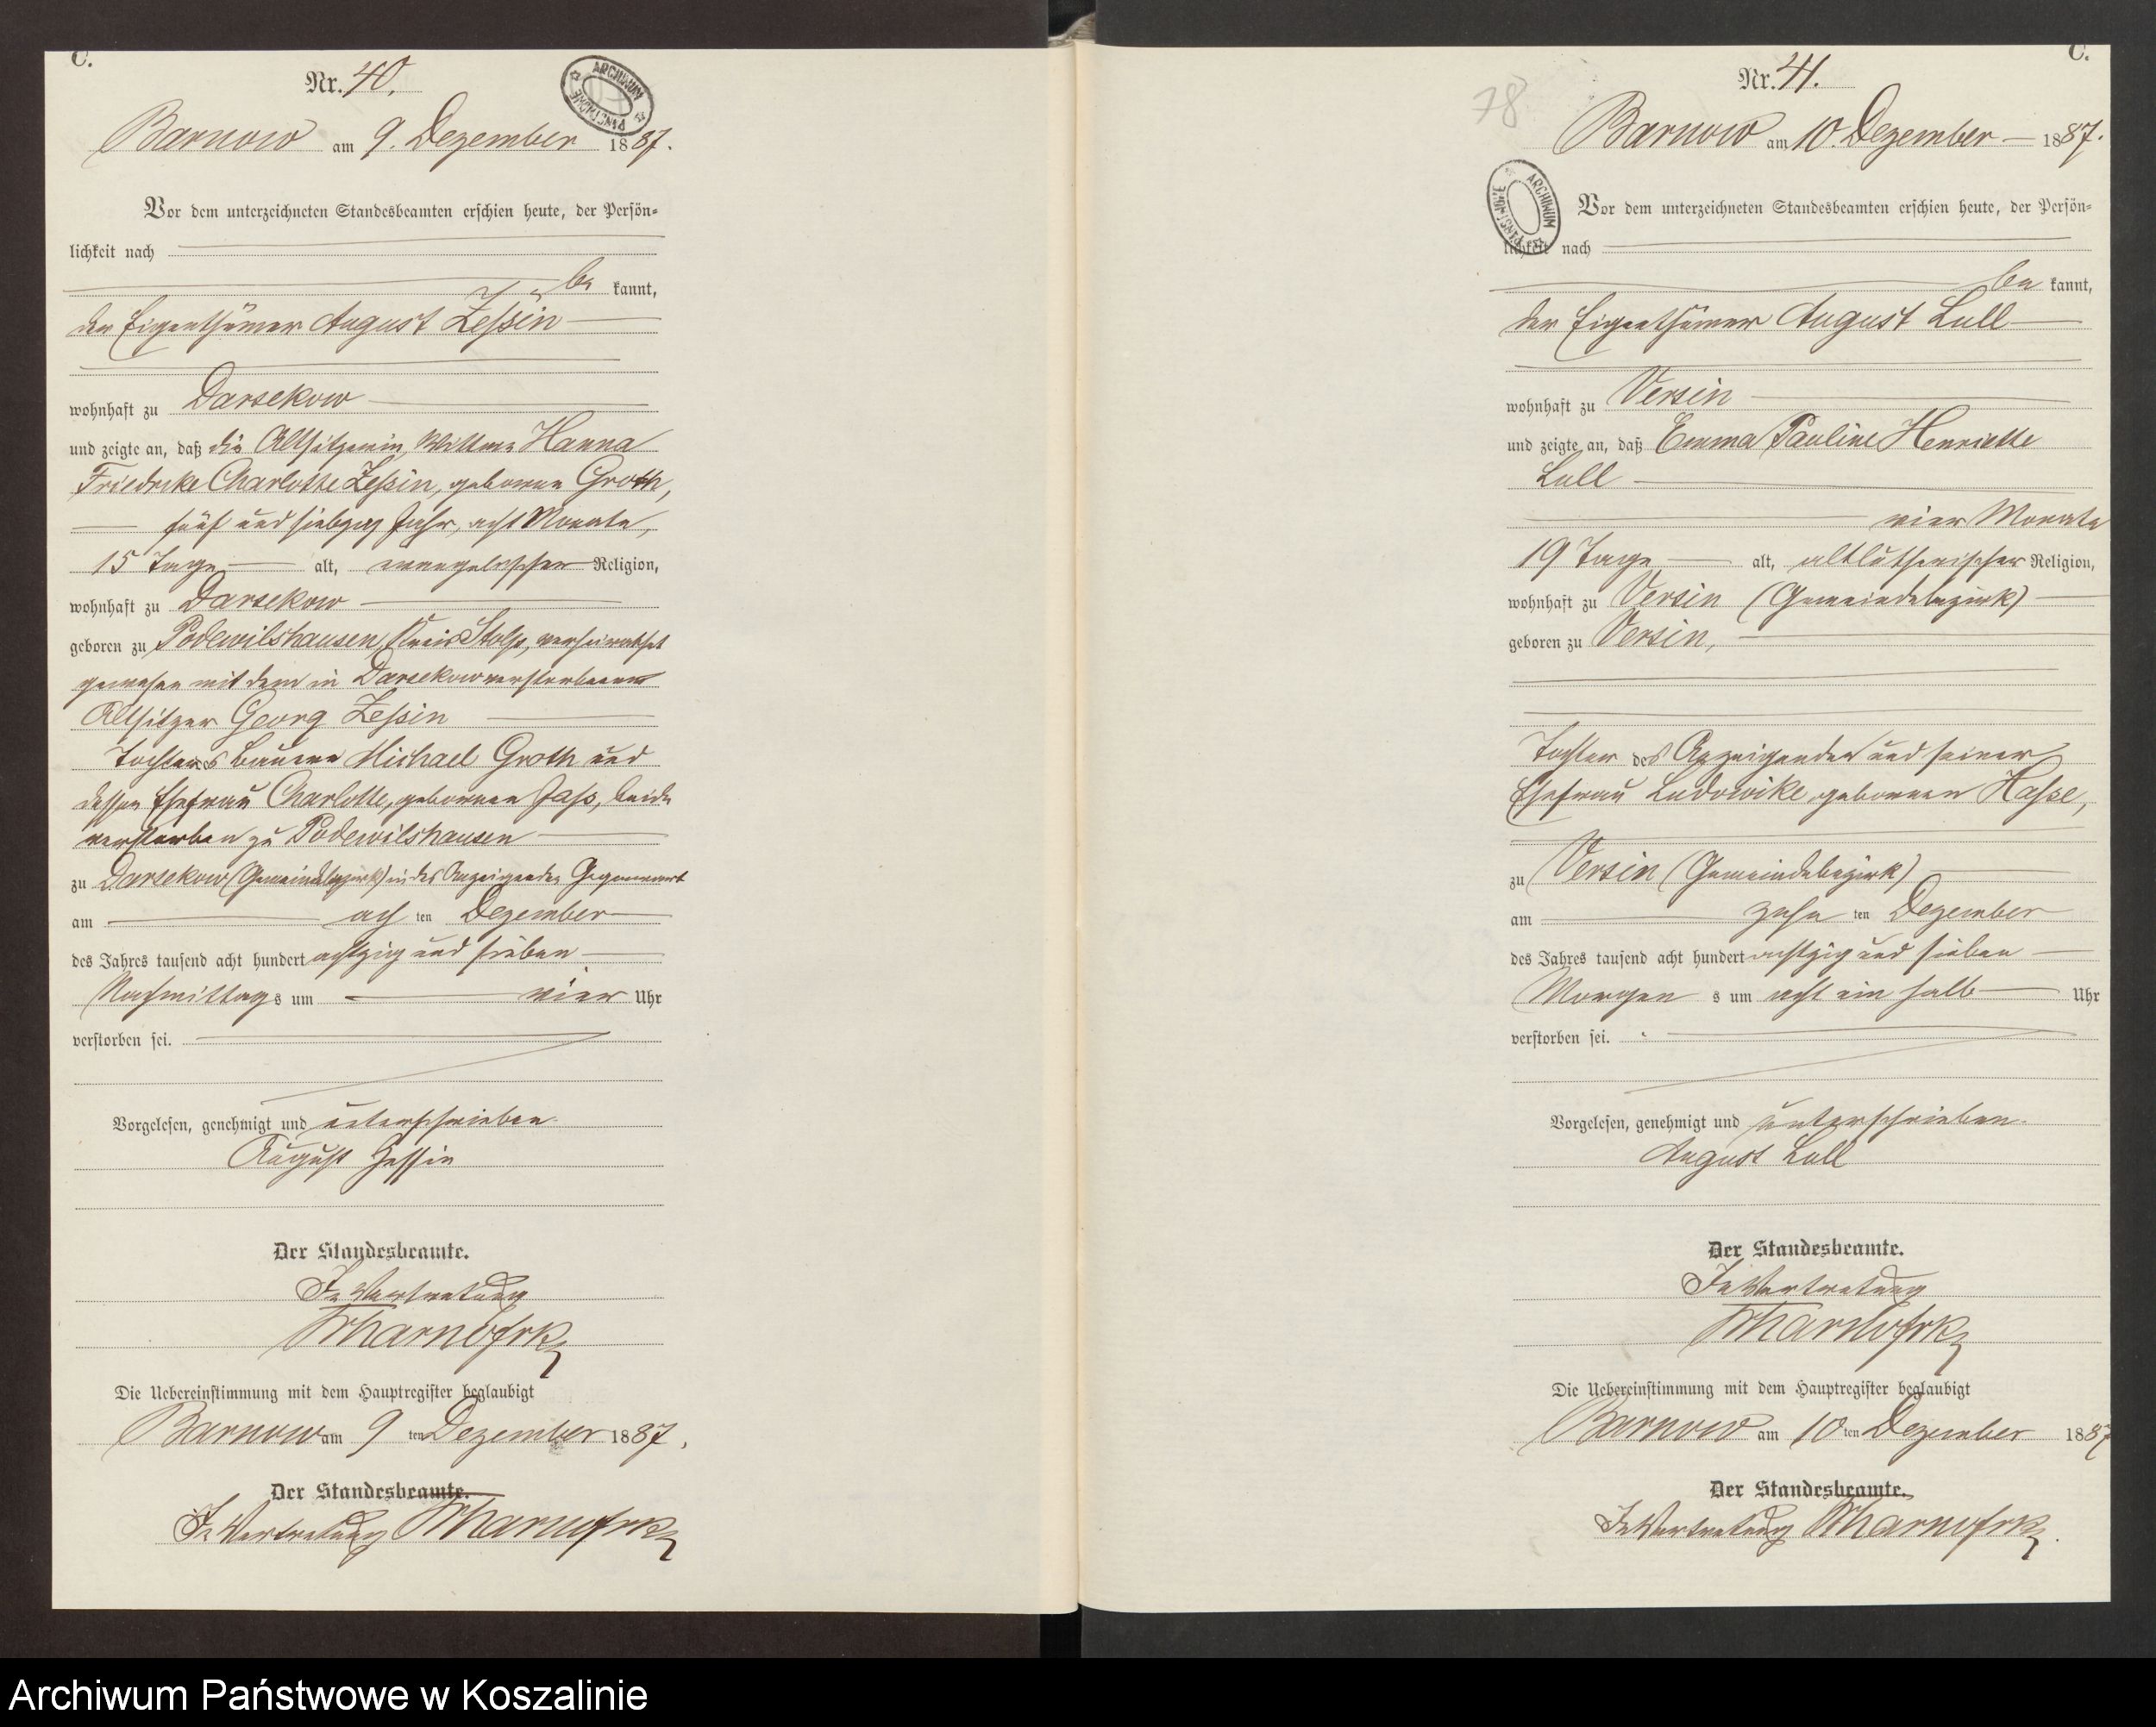 C.
Nr. 40.
ARCHIWUM PAŃSTWOWE
Barnow am 9. Dezember 1887.
Vor dem unterzeichneten Standesbeamten erschien heute, der Persön-
lichkeit nach
be kannt,
der Eigenthümer August Zessin
wohnhaft zu Darsekow
und zeigte an, daß die Altsitzerin, Wittwe Hanna
Friedrike Charlotte Zessin, geborene Groth,
fünf und siebzig Jahr, acht Monate,
15 Tage alt, evangelischer Religion,
wohnhaft zu Darsekow
geboren zu Podewilshausen, Kreis Stolp, verheirathet
gewesen mit dem in Darsekow verstorbenen
Altsitzer Georg Zessin
Tochter des Bauern Michael Groth und
dessen Ehefrau Charlotte, geborenen Jass, beide
verstorben zu Podewilshausen
zu Darsekow (Gemeindebezirk) in des Anzeigenden Gegenwart
am ach ten Dezember
des Jahres tausend acht hundert achtzig und sieben
Nachmittag s um vier Uhr
verstorben sei.
Vorgelesen, genehmigt und unterschrieben
August Zessin
Der Standesbeamte.
In Vertretung
Die Uebereinstimmung mit dem Hauptregister beglaubigt
Barnow am 9 ten Dezember 1887.
Der Standesbeamte.
In Vertretung
C.
Nr. 41.
78
Barnow am 10. Dezember 1887.
ARCHIWUM PAŃSTWOWE
Vor dem unterzeichneten Standesbeamten erschien heute, der Persön-
lichkeit nach
be kannt,
der Eigenthümer August Lull
wohnhaft zu Versin
und zeigte an, daß Emma Pauline Henriette
Lull
vier Monate
19 Tage alt, altlutherischer Religion,
wohnhaft zu Versin (Gemeindebezirk)
geboren zu Versin,
Tochter des Anzeigenden und seiner
Ehefrau Ludowike geborenen Hasse,
zu Versin (Gemeindebezirk)
am zehn ten Dezember
des Jahres tausend acht hundert achtzig und sieben
Morgen s um acht ein halb Uhr
verstorben sei.
Vorgelesen, genehmigt und unterschrieben.
August Lull
Der Standesbeamte.
In Vertretung
Die Uebereinstimmung mit dem Hauptregister beglaubigt
Barnow am 10 ten Dezember 1887
Der Standesbeamte.
In Vertretung
Archiwum Państwowe w Koszalinie